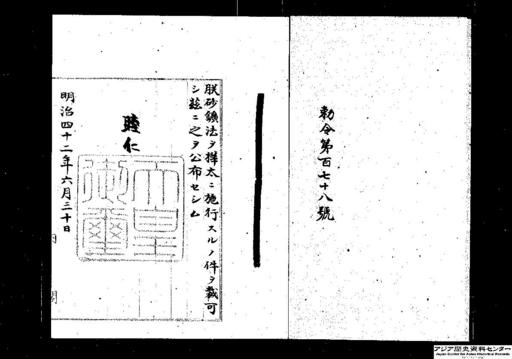 勅令第百七十八號
朕砂鑛法ヲ樺太ニ施行スルノ件ヲ裁可
シ玆ニ之ヲ公布セシム
睦仁
天皇御璽
明治四十二年六月三十日
アジア歴史資料センター
Japan Center for Asian Historical Records